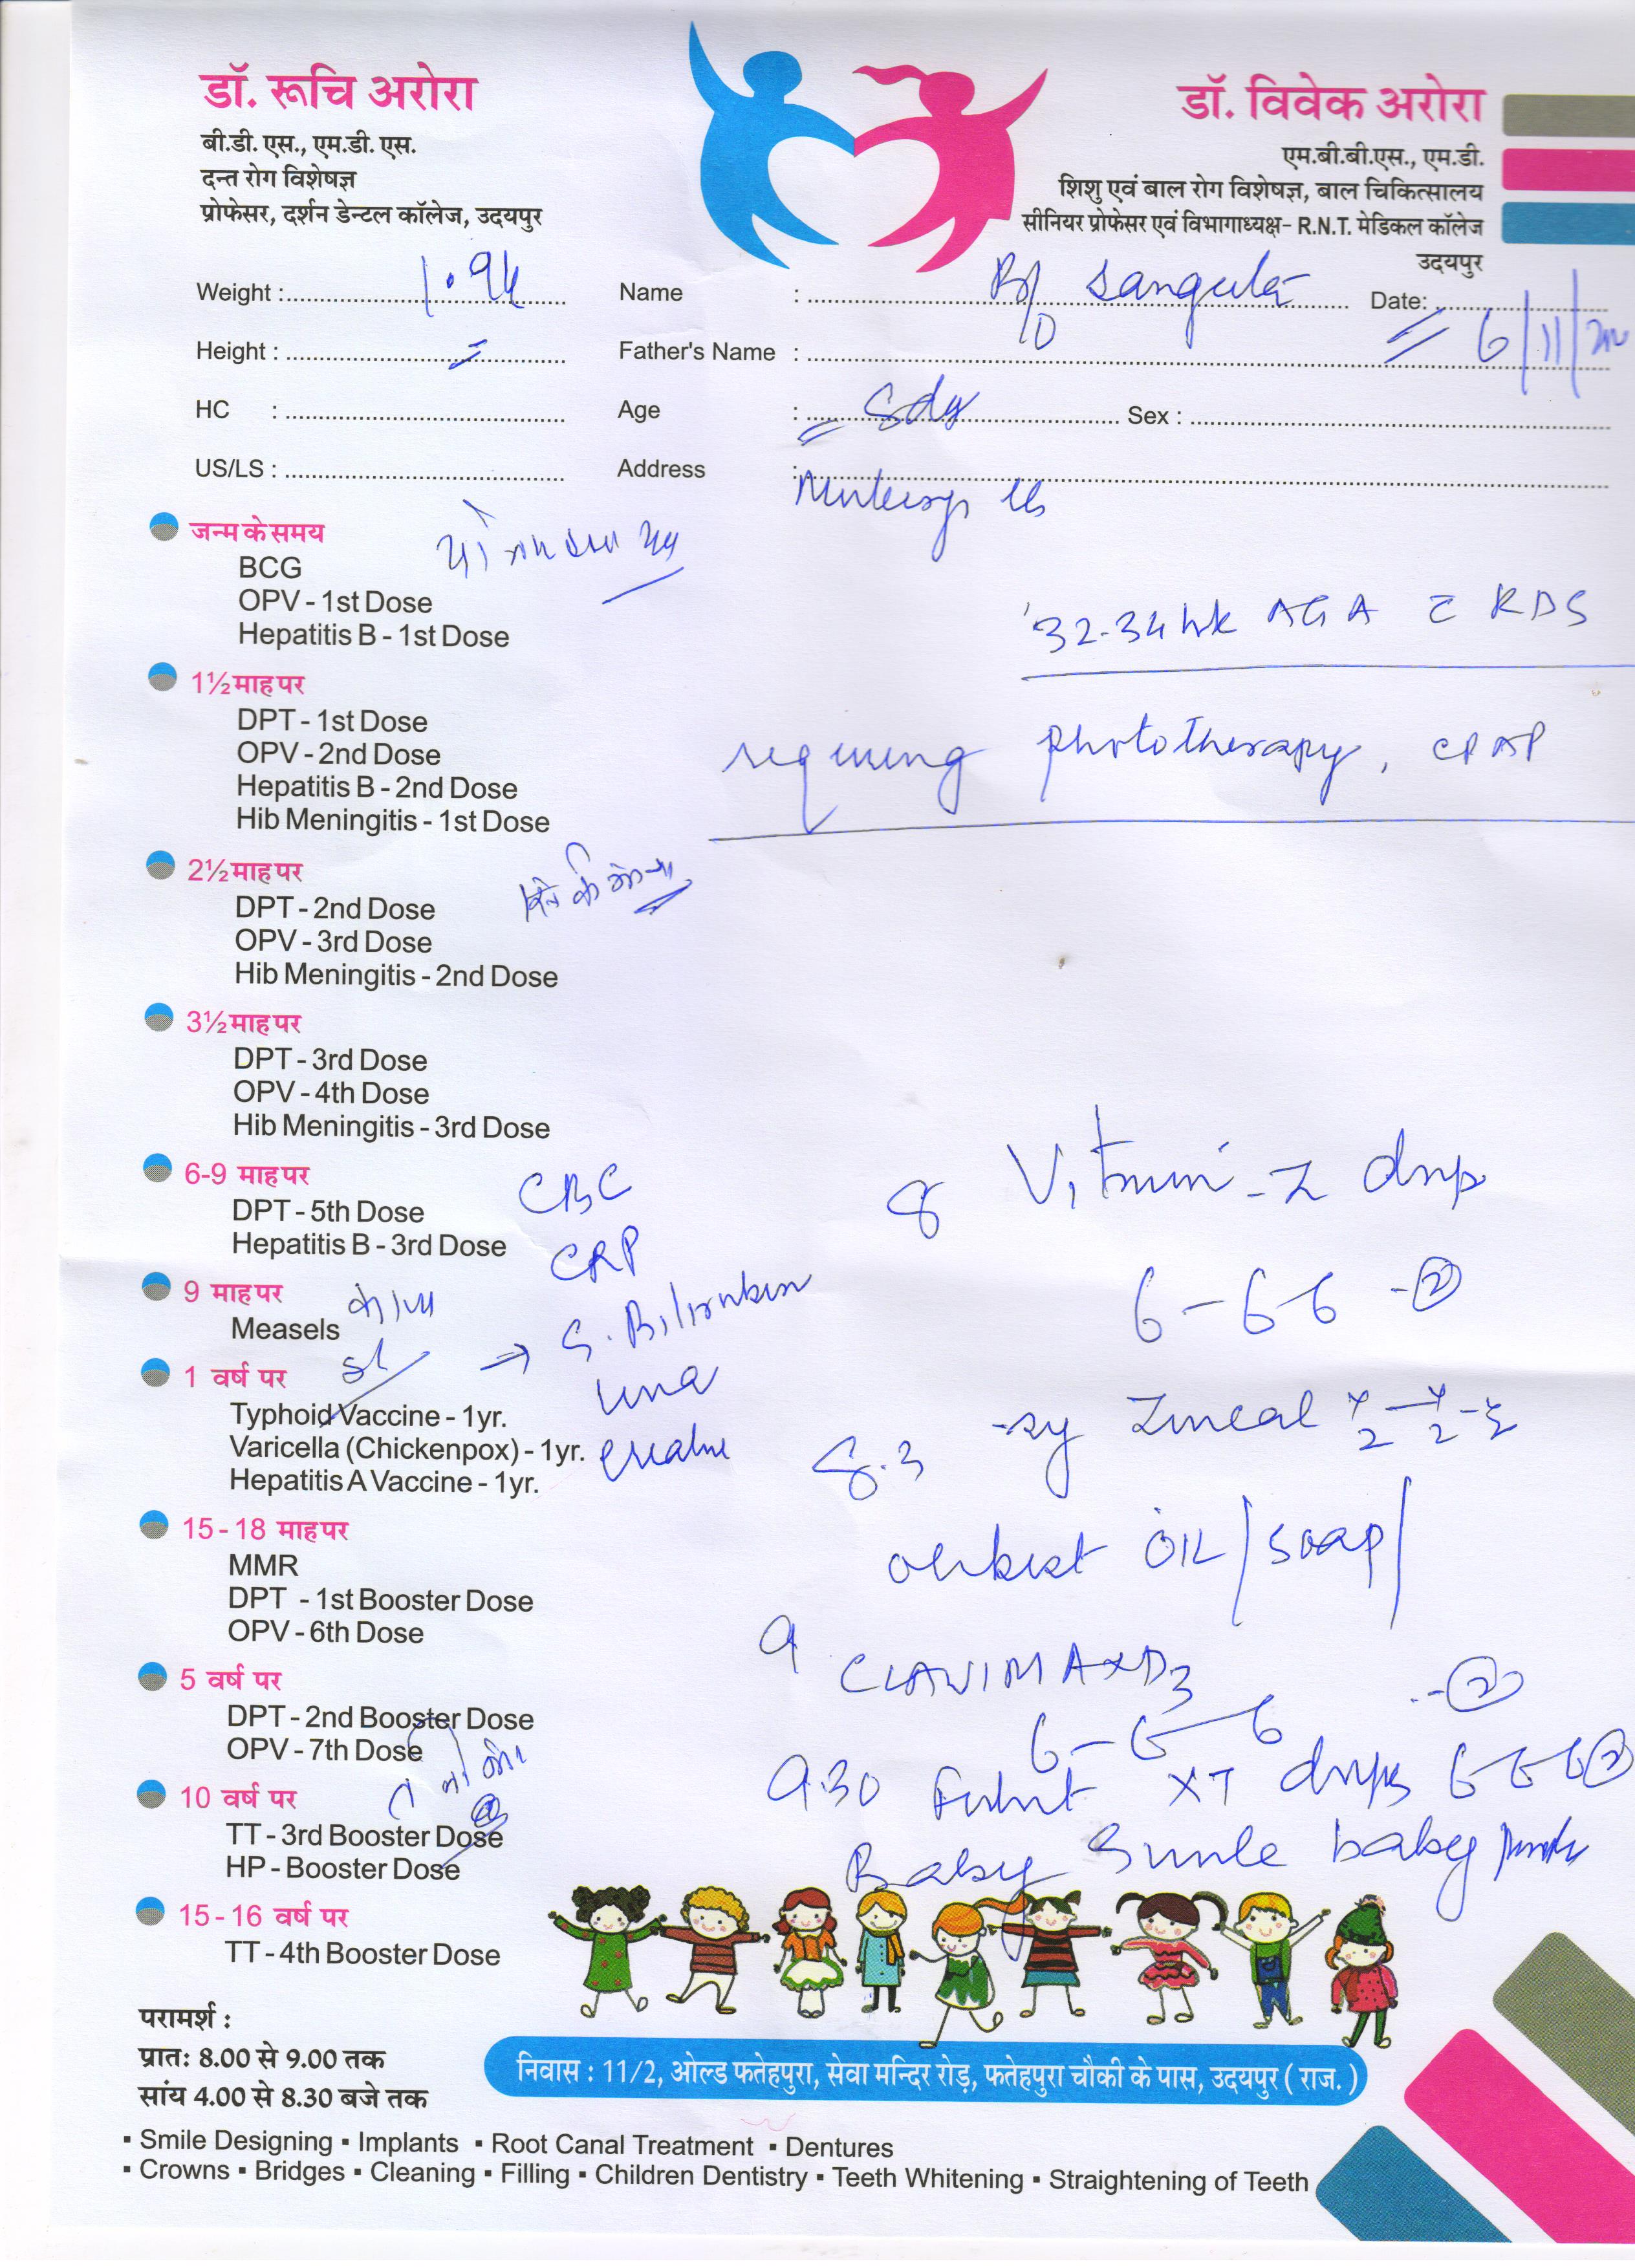 डॉ. रूचि अरोरा
बी.डी. एस., एम.डी. एस.
दन्त रोग विशेषज्ञ
प्रोफेसर, दर्शन डेन्टल कॉलेज, उदयपुर
डॉ. विवेक अरोरा
एम.बी.बी.एस., एम.डी.
शिशु एवं बाल रोग विशेषज्ञ, बाल चिकित्सालय
सीनियर प्रोफेसर एवं विभागाध्यक्ष- R.N.T. मेडिकल कॉलेज
उदयपुर
Weight : 1.94 Name : B/O Sangeeta Date: 6/11/20
Height : Father's Name :
HC : Age : Sex :
US/LS : Address :
जन्म के समय
BCG
OPV - 1st Dose
Hepatitis B - 1st Dose
32-34 wk AGA c RDS
1½ माह पर
DPT - 1st Dose
OPV - 2nd Dose
Hepatitis B - 2nd Dose
Hib Meningitis - 1st Dose
requiring phototherapy, CPAP
2½ माह पर
DPT - 2nd Dose
OPV - 3rd Dose
Hib Meningitis - 2nd Dose
3½ माह पर
DPT - 3rd Dose
OPV - 4th Dose
Hib Meningitis - 3rd Dose
6-9 माह पर
DPT - 5th Dose
Hepatitis B - 3rd Dose
CBC
CRP
S. Bilirubin
8 Vitamin-Z drop
6-6-6 -②
9 माह पर
Measels
1 वर्ष पर
Typhoid Vaccine - 1yr.
Varicella (Chickenpox) - 1yr.
Hepatitis A Vaccine - 1yr.
8.3 -sy
OIL/soap/
15-18 माह पर
MMR
DPT - 1st Booster Dose
OPV - 6th Dose
9 CLAVIMAXD3
6-6-6 -②
5 वर्ष पर
DPT - 2nd Booster Dose
OPV - 7th Dose
9.30 XT drops 6-6-6 ②
Baby baby
10 वर्ष पर
TT - 3rd Booster Dose
HP - Booster Dose
15-16 वर्ष पर
TT - 4th Booster Dose
परामर्श :
प्रातः 8.00 से 9.00 तक
सांय 4.00 से 8.30 बजे तक
निवास : 11/2, ओल्ड फतेहपुरा, सेवा मन्दिर रोड़, फतेहपुरा चौकी के पास, उदयपुर ( राज. )
▪ Smile Designing ▪ Implants ▪ Root Canal Treatment ▪ Dentures
▪ Crowns ▪ Bridges ▪ Cleaning ▪ Filling ▪ Children Dentistry ▪ Teeth Whitening ▪ Straightening of Teeth